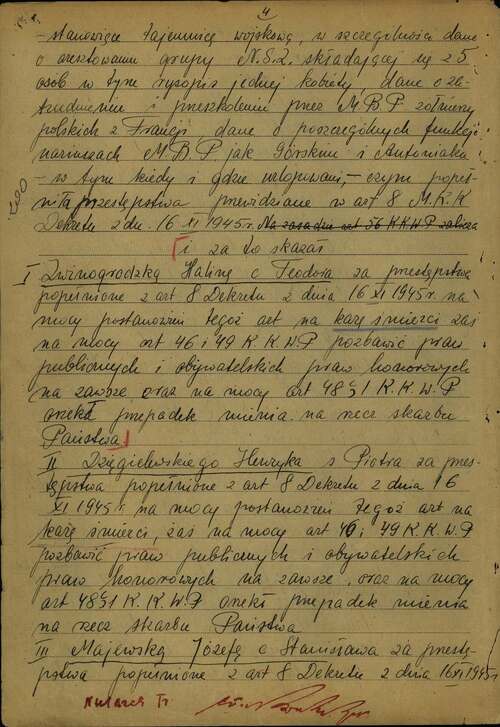 4
- stanowiące tajemnicę wojskową, w szczególności dane
o aresztowaniu grupy N.S.Z. składającej się z 5
osób w tym rysopis jednej kobiety, dane o za-
trudnieniu i przeszkoleniu przez M.B.P. żołnierzy
polskich z Francji, dane o poszczególnych funkcjo
nariuszach M.B.P jak Górskim i Antoniaku
- w tym kiedy i gdzie urlopowani, - czym popeł-
niła przestępstwa przewidziane w art 8 M.K.K
Dekretu z dn. 16 XI 1945 r. Na zasadzie art 56 K.K.W.P zalicza
i za to skazał
I Zwinogrodzką Halinę c Teodora za przestępstwa
popełnione z art 8 Dekretu z dnia 16 XI 1945 r. na
mocy postanowień tegoż art na karę śmierci zaś
na mocy art 46 i 49 K.K.W.P pozbawić praw
publicznych i obywatelskich praw honorowych
na zawsze, oraz na mocy art 48 § 1 K.K.W.P
orzekł przepadek mienia na rzecz skarbu
Państwa
II Dzięgielewskiego Henryka s Piotra za przes-
tępstwa popełnione z art 8 Dekretu z dnia 16
XI 1945 r na mocy postanowień tegoż art na
karę śmierci, zaś na mocy art 46 i 49 K.K.W.P
pozbawić praw publicznych i obywatelskich
praw honorowych na zawsze, oraz na mocy
art 48 § 1 K.K.W.P orzekł przepadek mienia
na rzecz skarbu Państwa
III Majewską Józefę c Stanisława za przestę-
pstwa popełnione z art 8 Dekretu z dnia 16 XI 1945 r